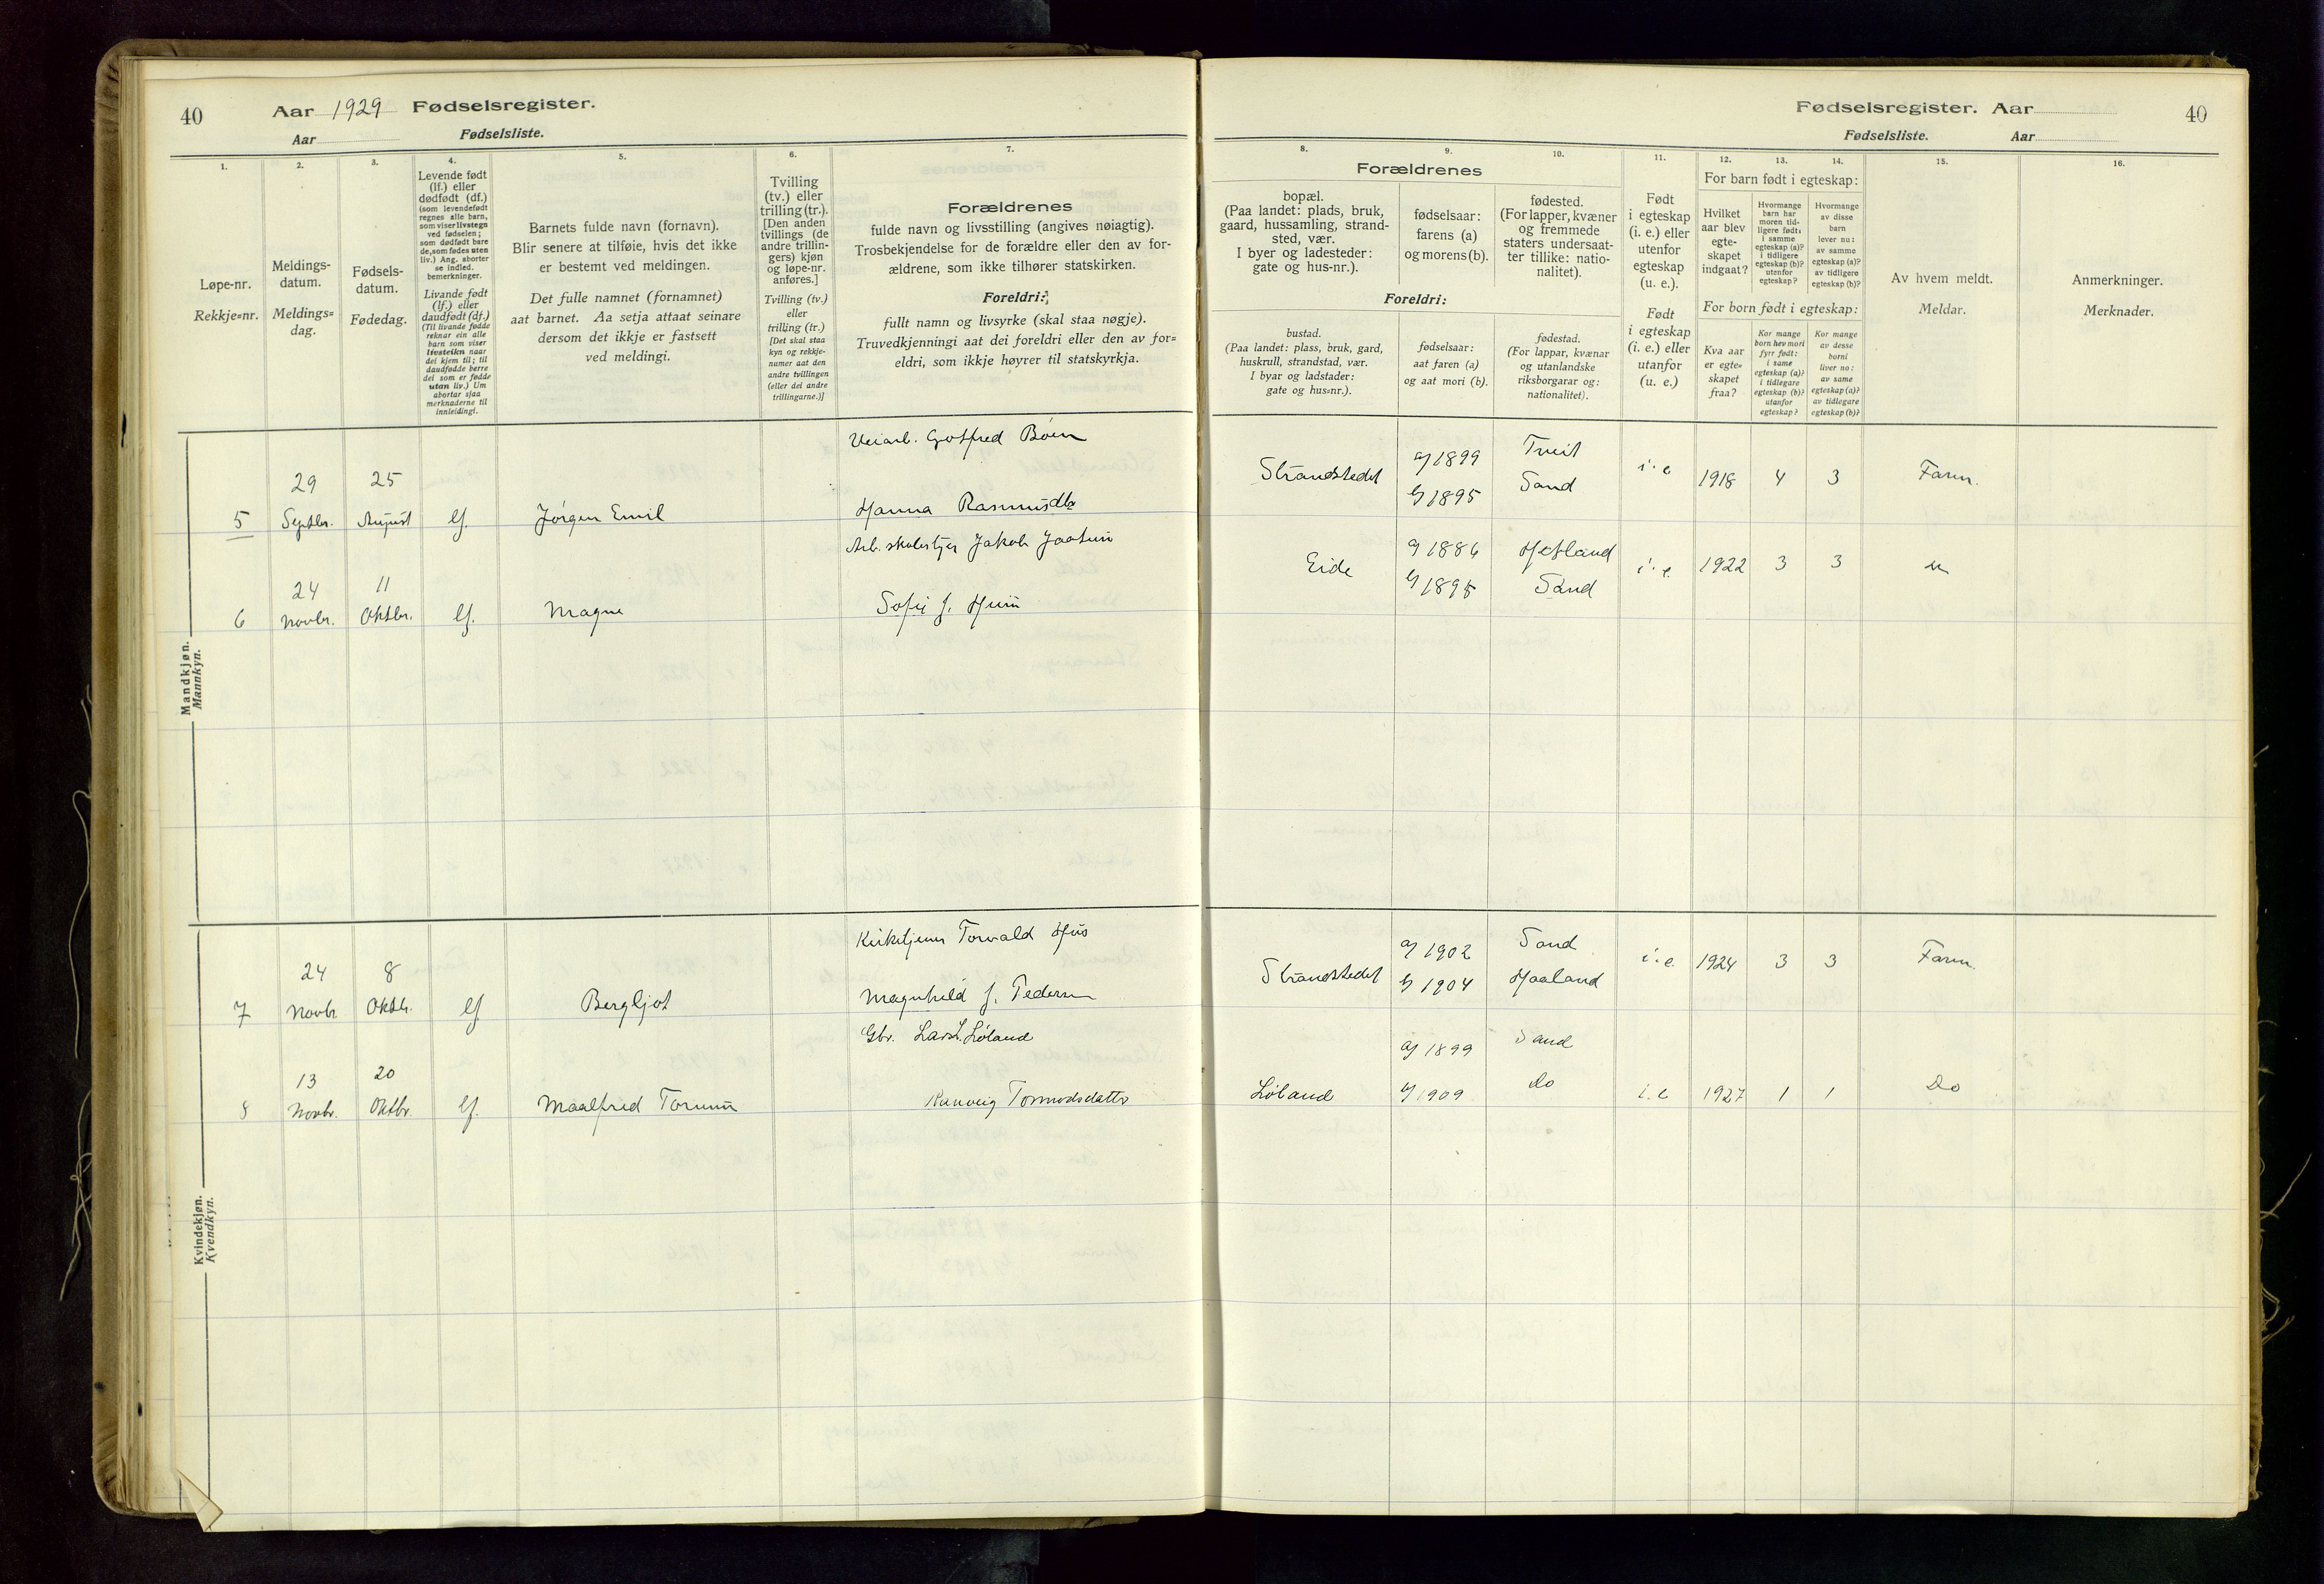 40
Aar 1929 Fødselsregister.
Aar Fødselsliste.
1.
2.
3.
4.
5.
6.
7.
Løpe-nr.
Rekkje=nr.
Meldings-
datum.
Meldings=
dag.
Fødsels-
datum.
Fødedag.
Levende født
(lf.) eller
dødfødt (df.)
(som levendefødt
regnes alle barn,
som viser livstegn
ved fødselen;
som dødfødt bare
de, som fødes uten
liv.) Ang. aborter
se indled.
bemerkninger.
Livande født
(lf.) eller
daudfødt (df.)
(Til livande fødde
reknar ein alle
barn som viser
livsteikn naar
dei kjem til; til
daudfødde berre
dei som er fødde
utan liv.) Um
abortar sjaa
merknaderne til
innleidingi.
Barnets fulde navn (fornavn).
Blir senere at tilføie, hvis det ikke
er bestemt ved meldingen.
Det fulle namnet (fornamnet)
aat barnet. Aa setja attaat seinare
dersom det ikkje er fastsett
ved meldingi.
Tvilling
(tv.) eller
trilling (tr.).
[Den anden
tvillings (de
andre trillin-
gers) kjøn
og løpe-nr.
anføres.]
Tvilling (tv.)
eller
trilling (tr.)
[Det skal staa
kyn og rekkje-
numer aat den
andre tvillingen
(eller dei andre
trillingarne.)]
Forældrenes
fulde navn og livsstilling (angives nøiagtig).
Trosbekjendelse for de forældre eller den av for-
ældrene, som ikke tilhører statskirken.
Foreldri:
fullt namn og livsyrke (skal staa nøgje).
Truvedkjenningi aat dei foreldri eller den av for=
eldri, som ikkje høyrer til statskyrkja.
Mandkjøn.
Mannkyn.
5
29
Septbr.
25
August
lf.
Jørgen Emil
Veiarb. Gotfred Bøen
Hanna Rasmusdtr
6
24
Novbr.
11
Oktbr.
lf.
Magne
Jakob
Sofie J.
Kvindekjøn.
Kvendkyn.
7
24
Novbr
8
Oktbr.
lf
Bergljot
Kirketjener Torvald Hus
Magnhild J. Pedersen
8
13
Novbr.
20
Oktbr.
lf.
Maalfred Torunn
Gbr. Lars L. Løland
Ranveig Tormodsdatter
Fødselsregister. Aar
40
Fødselsliste. Aar
8.
9.
10.
11.
12.
13.
14.
15.
16.
Forældrenes
bopæl.
(Paa landet: plads, bruk,
gaard, hussamling, strand-
sted, vær.
I byer og ladesteder:
gate og hus-nr.).
fødselsaar:
farens (a)
og morens (b).
fødested.
(For lapper, kvæner
og fremmede
staters undersaat-
ter tillike: natio-
nalitet).
Foreldri:
bustad.
(Paa landet: plass, bruk, gard,
huskrull, strandstad, vær.
I byar og ladstader:
gate og hus=nr.).
fødselsaar:
aat faren (a)
og aat mori (b).
fødestad.
(For lappar, kvænar
og utanlandske
riksborgarar og:
nationalitet).
Født
i egteskap
(i. e.) eller
utenfor
egteskap
(u. e.).
Født
i egteskap
(i. e.) eller
utanfor
(u. e.)
For barn født i egteskap:
Hvilket
aar blev
egte-
skapet
indgaat?
Hvormange
barn har
moren tid-
ligere født:
i samme
egteskap (a)?
i tidligere
egteskap (b)?
utenfor
egteskap?
Hvormange
av disse
barn
lever nu:
av samme
egteskap (a)?
av tidligere
egteskap (b)?
For born født i egteskap:
Kva aar
er egte=
skapet
fraa?
Kor mange
born hev mori
fyrr født:
i same
egteskap (a)?
i tidlegare
egteskap (b)?
utanfor
egteskap?
Kor mange
av desse
borni
liver no:
av same
egteskap (a)?
av tidlegare
egteskap (b)?
Av hvem meldt.
Meldar.
Anmerkninger.
Merknader.
Strandstedet
a/ 1899
b/ 1895
Tveit
Sand
i. e
1918
4
3
Faren.
Eide
a/ 1886
b/ 1895
Sand
i. e.
1922
3
3
Strandstedet
a/ 1902
b/ 1904
Sand
Haaland
i. e.
1924
3
3
Faren.
Løland
a/ 1899
b/ 1909
Sand
do
i. e
1927
1
1
Do